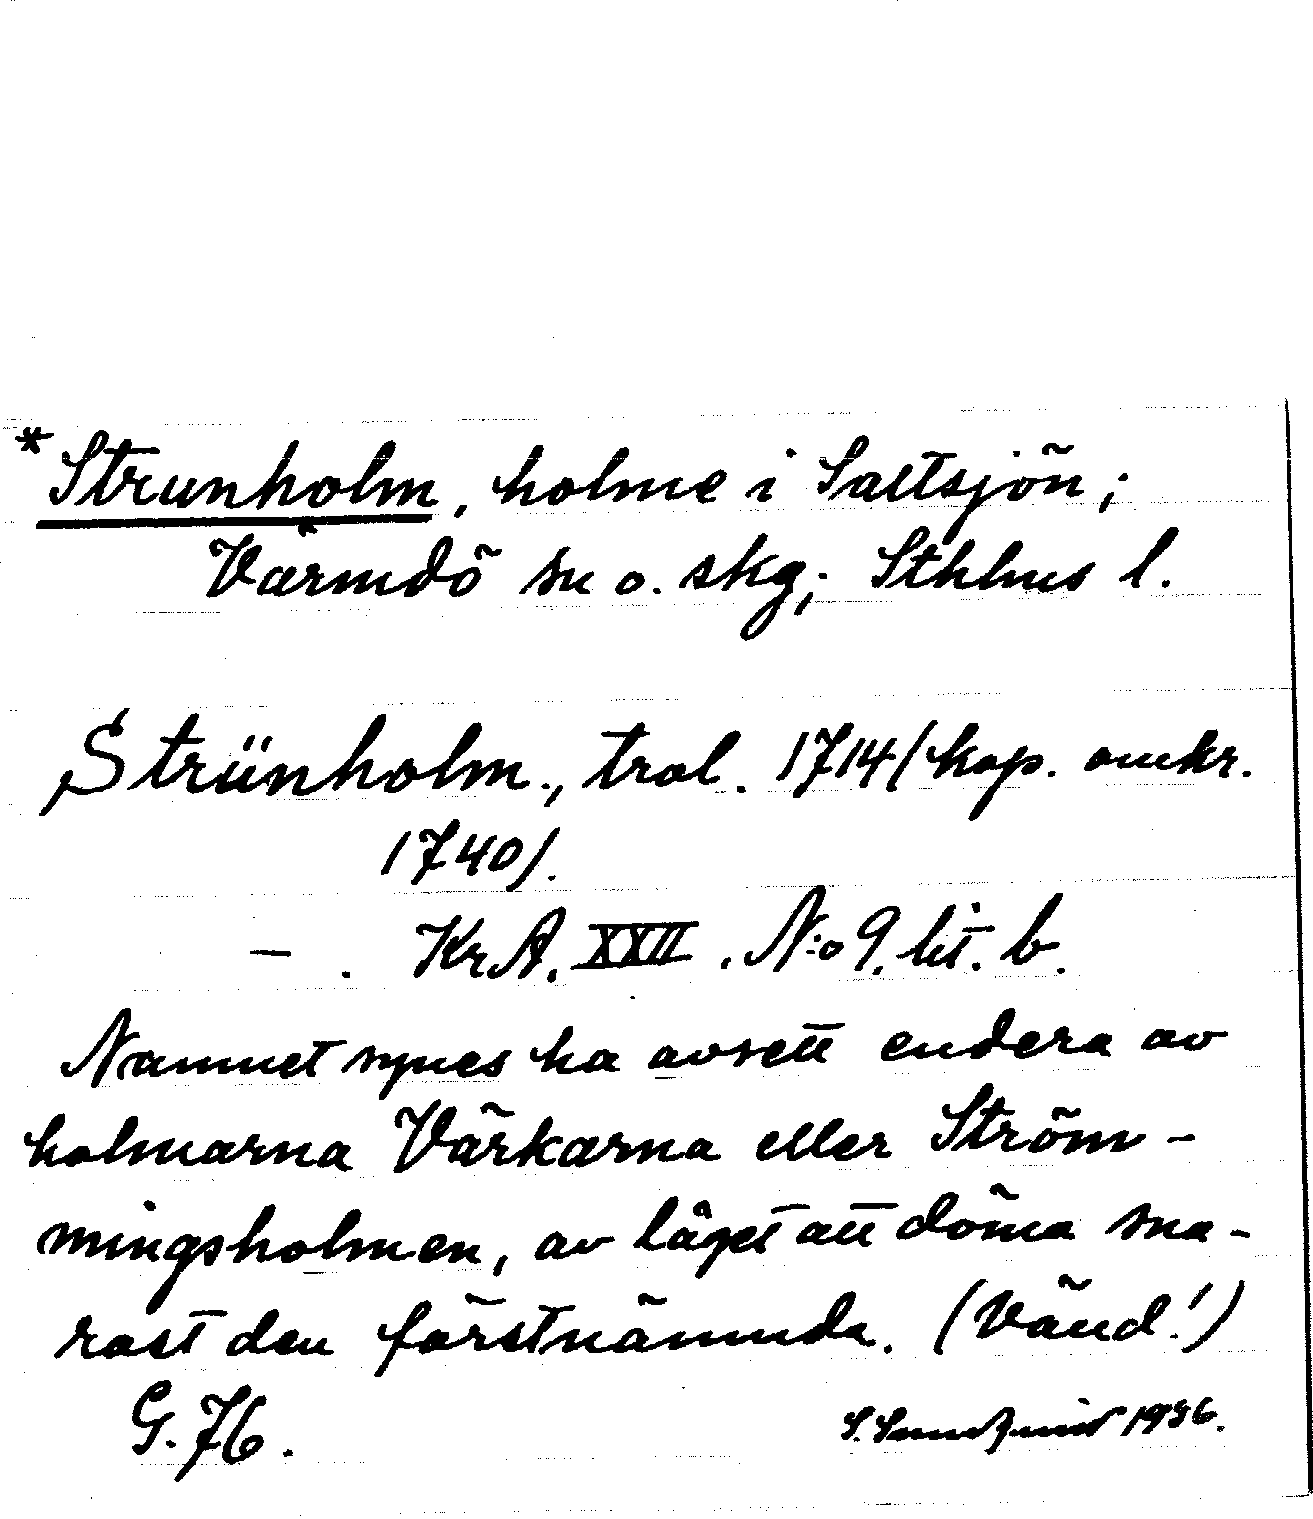 *Strunholm, holme i Saltsjön;
Värmdö sn o. skg; Sthlms l.
Strünholm., trol. 1714/kop. omkr.
1740/.
— . KrA. XXII. N:o 9. lit. b.
Namnet synes ha avsett endera av
holmarna Vårkarna eller Ström-
mingsholmen, av läget att döma sna-
rast den förstnämnda. (Vänd!)
G. 76.
S. Sundqvist 1936.